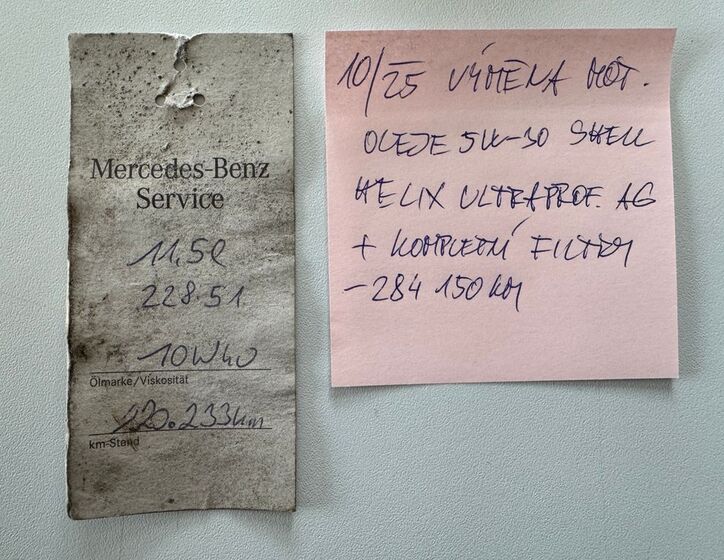 Mercedes-Benz
Service
11,5l
228.51
10W40
Ölmarke/Viskosität
220.233km
km-Stand
10/25 VÝMĚNA MOT.
OLEJE 5W-30 SHELL
HELIX ULTRAPROF. AG
+ KOMPLETNÍ FILTRY
- 284 150 KM